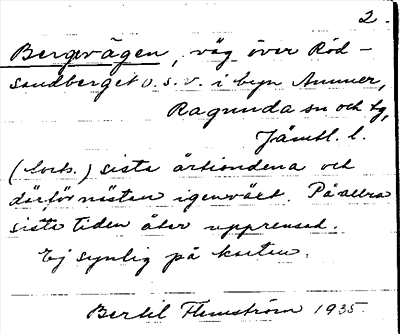 2.
Bergvägen, väg över Röd-
sandberget o.s.v. i byn Ammer,
Ragunda sn och tg,
Jämtl. l.
sista årtiondena och
därför nästan igenväxt. På allra
sista tiden åter upprensad.
Ej synlig på kartan.
Bertil Flemström 1935.